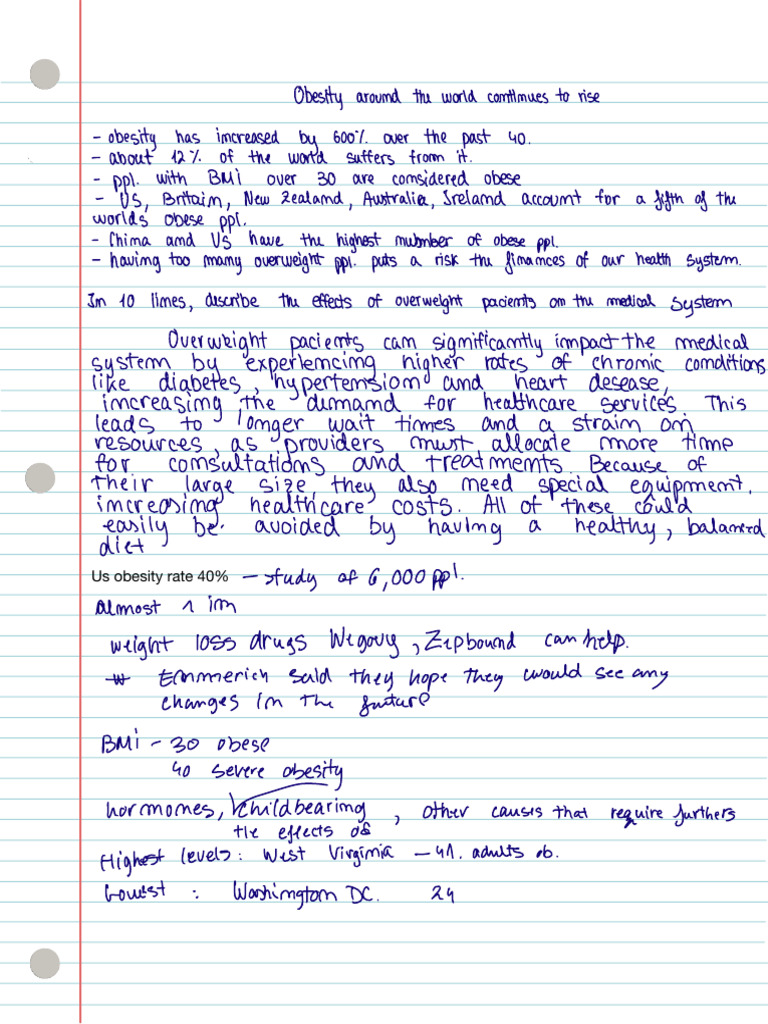 Obesity around the world continues to rise
- obesity has increased by 600% over the past 40.
- about 12% of the world suffers from it.
- ppl. with BMI over 30 are considered obese
- US, Britain, New Zealand, Australia, Ireland account for a fifth of the
worlds obese ppl.
- China and US have the highest number of obese ppl.
- having too many overweight ppl. puts a risk the finances of our health system.
In 10 lines, describe the effects of overweight pacients on the medical system
Overweight pacients can significantly impact the medical
system by experiencing higher rates of chronic conditions
like diabetes, hypertension and heart desease,
increasing the demand for healthcare services. This
leads to longer wait times and a strain on
resources, as providers must allocate more time
for consultations and treatments. Because of
their large size, they also need special equipment,
increasing healthcare costs. All of these could
easily be avoided by having a healthy, balanced
diet
Us obesity rate 40% - study of 6,000 ppl.
Almost 1 in
weight loss drugs Wegovy, Zepbound can help.
Emmerich said they hope they would see any
changes in the future
BMI - 30 obese
40 severe obesity
hormones, childbearing, other causes that require furthers
the effects of
Highest levels: West Virginia - 41. adults ob.
Lowest : Washington DC. 24